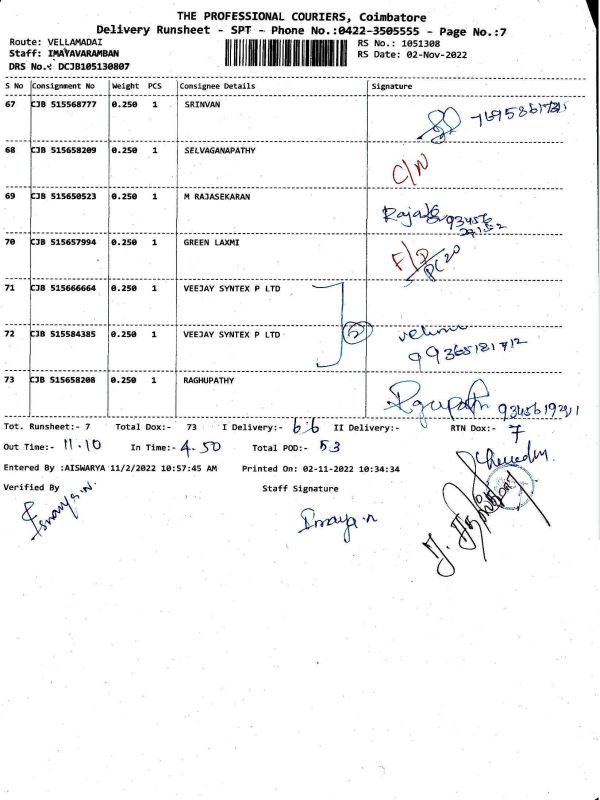 THE PROFESSIONAL COURIERS, Coimbatore
Delivery Runsheet - SPT - Phone No.:0422-3505555 - Page No.:7
Route: VELLAMADAI RS No.: 1051308
Staff: IMAYAVARAMBAN RS Date: 02-Nov-2022
DRS No.: DCJB105130807
S No Consignment No Weight PCS Consignee Details Signature
67 CJB 515568777 0.250 1 SRINVAN
68 CJB 515658209 0.250 1 SELVAGANAPATHY C/N
69 CJB 515650523 0.250 1 M RAJASEKARAN
70 CJB 515657994 0.250 1 GREEN LAXMI
71 CJB 515666664 0.250 1 VEEJAY SYNTEX P LTD
72 CJB 515584385 0.250 1 VEEJAY SYNTEX P LTD 2
73 CJB 515658208 0.250 1 RAGHUPATHY
Tot. Runsheet:- 7 Total Dox:- 73 I Delivery:- 66 II Delivery:- RTN Dox:- 7
Out Time:- 11.10 In Time:- 4.50 Total POD:- 53
Entered By :AISWARYA 11/2/2022 10:57:45 AM Printed On: 02-11-2022 10:34:34
Verified By Staff Signature
Imaya.n